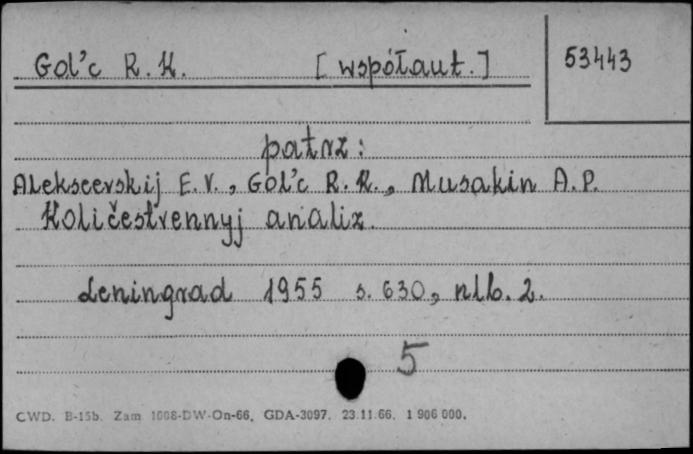 Gol'c R. K. [współaut.] 53443
patrz:
Alekseevskij E. V., Gol'c R. K., Musakin A. P.
Količestvennyj analiz.
Leningrad 1955 s. 630, nlb. 2.
5
CWD. B-15b. Zam 1068-DW-On-66. GDA-3097. 23.11.66. 1 906 000.